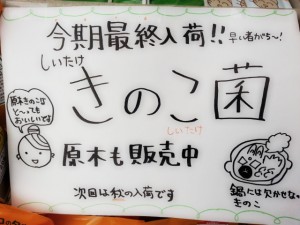 今期最終入荷!! 早い者がち〜!
しいたけ
きのこ菌
しいたけ
原木きのこは
と〜っても
おいしいです
原木も販売中
次回は秋の入荷です
鍋には欠かせない
きのこ